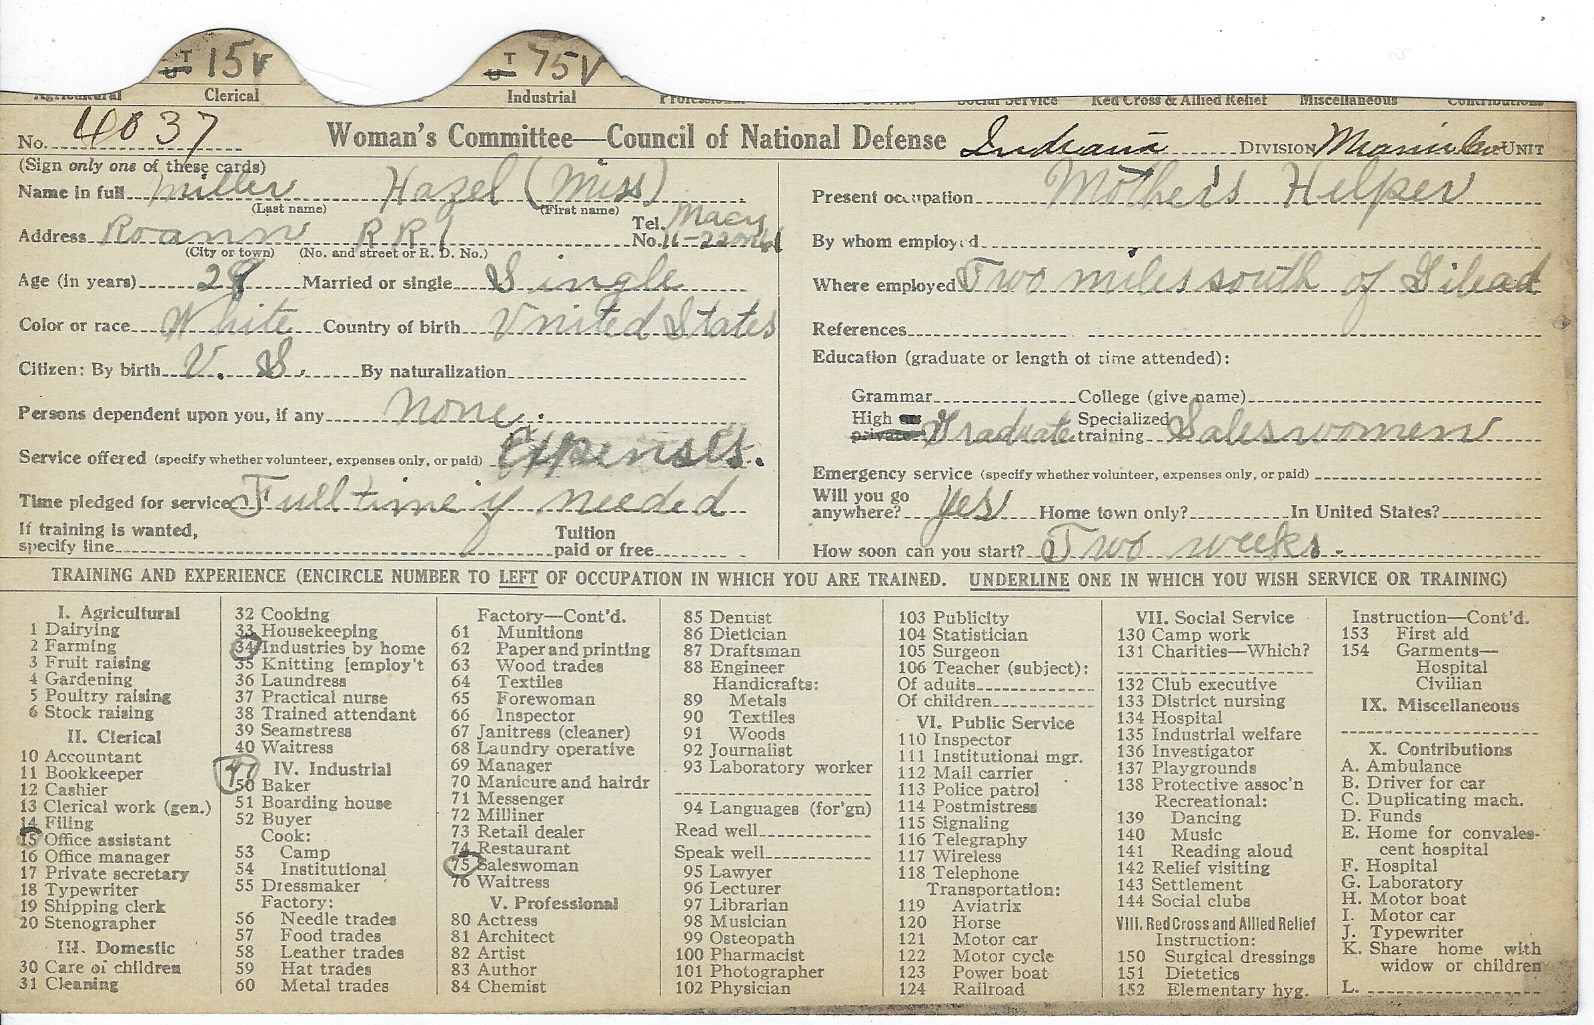 T 15V T 75V
Clerical Industrial Social Service Red Cross & Allied Relief Miscellaneous Contributions
No. 4037 Woman's Committee—Council of National Defense Indiana DIVISION Miami Co UNIT
(Sign only one of these cards)
Name in full Miller Hazel (Miss)
(Last name) (First name)
Address Roann RR1 Tel. No. Macy 11-22
(City or town) (No. and street or R. D. No.)
Age (in years) 28 Married or single Single
Color or race White Country of birth United States
Citizen: By birth U. S. By naturalization
Persons dependent upon you, if any none.
Service offered (specify whether volunteer, expenses only, or paid) Expenses.
Time pledged for service Full time if needed
If training is wanted, Tuition
specify line paid or free
Present occupation Mother's Helper
By whom employed
Where employed Two miles south of Gilead
References
Education (graduate or length of time attended):
Grammar College (give name)
High Graduate Specialized
private training Saleswomen
Emergency service (specify whether volunteer, expenses only, or paid)
Will you go
anywhere? Yes Home town only? In United States?
How soon can you start? Two weeks.
TRAINING AND EXPERIENCE (ENCIRCLE NUMBER TO LEFT OF OCCUPATION IN WHICH YOU ARE TRAINED. UNDERLINE ONE IN WHICH YOU WISH SERVICE OR TRAINING)
I. Agricultural
1 Dairying
2 Farming
3 Fruit raising
4 Gardening
5 Poultry raising
6 Stock raising
II. Clerical
10 Accountant
11 Bookkeeper
12 Cashier
13 Clerical work (gen.)
14 Filing
15 Office assistant
16 Office manager
17 Private secretary
18 Typewriter
19 Shipping clerk
20 Stenographer
III. Domestic
30 Care of children
31 Cleaning
32 Cooking
33 Housekeeping
34 Industries by home
35 Knitting [employ't
36 Laundress
37 Practical nurse
38 Trained attendant
39 Seamstress
40 Waitress
IV. Industrial
50 Baker
51 Boarding house
52 Buyer
Cook:
53 Camp
54 Institutional
55 Dressmaker
Factory:
56 Needle trades
57 Food trades
58 Leather trades
59 Hat trades
60 Metal trades
Factory—Cont'd.
61 Munitions
62 Paper and printing
63 Wood trades
64 Textiles
65 Forewoman
66 Inspector
67 Janitress (cleaner)
68 Laundry operative
69 Manager
70 Manicure and hairdr
71 Messenger
72 Milliner
73 Retail dealer
74 Restaurant
75 Saleswoman
76 Waitress
V. Professional
80 Actress
81 Architect
82 Artist
83 Author
84 Chemist
85 Dentist
86 Dietician
87 Draftsman
88 Engineer
Handicrafts:
89 Metals
90 Textiles
91 Woods
92 Journalist
93 Laboratory worker
94 Languages (for'gn)
Read well
Speak well
95 Lawyer
96 Lecturer
97 Librarian
98 Musician
99 Osteopath
100 Pharmacist
101 Photographer
102 Physician
103 Publicity
104 Statistician
105 Surgeon
106 Teacher (subject):
Of adults
Of children
VI. Public Service
110 Inspector
111 Institutional mgr.
112 Mail carrier
113 Police patrol
114 Postmistress
115 Signaling
116 Telegraphy
117 Wireless
118 Telephone
Transportation:
119 Aviatrix
120 Horse
121 Motor car
122 Motor cycle
123 Power boat
124 Railroad
VII. Social Service
130 Camp work
131 Charities—Which?
132 Club executive
133 District nursing
134 Hospital
135 Industrial welfare
136 Investigator
137 Playgrounds
138 Protective assoc'n
Recreational:
139 Dancing
140 Music
141 Reading aloud
142 Relief visiting
143 Settlement
144 Social clubs
VIII. Red Cross and Allied Relief
Instruction:
150 Surgical dressings
151 Dietetics
152 Elementary hyg.
Instruction—Cont'd.
153 First aid
154 Garments—
Hospital
Civilian
IX. Miscellaneous
X. Contributions
A. Ambulance
B. Driver for car
C. Duplicating mach.
D. Funds
E. Home for convales-
cent hospital
F. Hospital
G. Laboratory
H. Motor boat
I. Motor car
J. Typewriter
K. Share home with
widow or children
L.